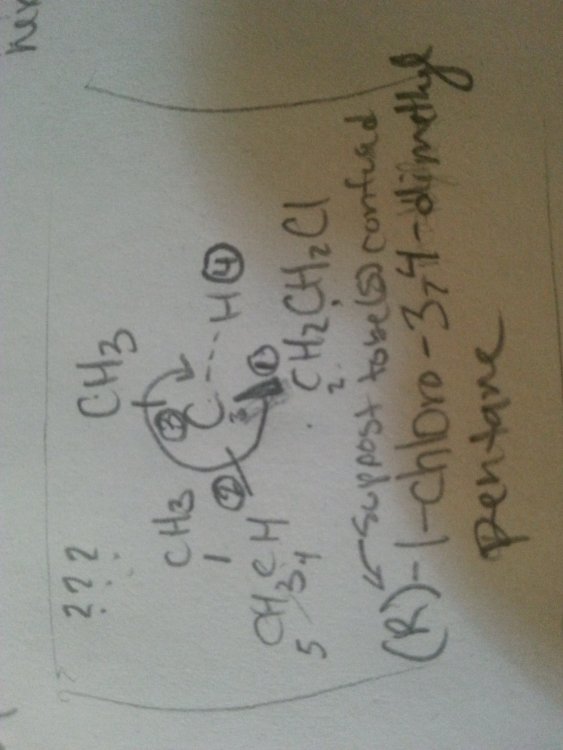 ???
CH3
CH3
③ C H ④
② 3 ①
CH3CH
5 4
CH2CH2Cl
2 1
suppost to be (S) confused
(R)-1-chloro-3,4-dimethyl
pentane